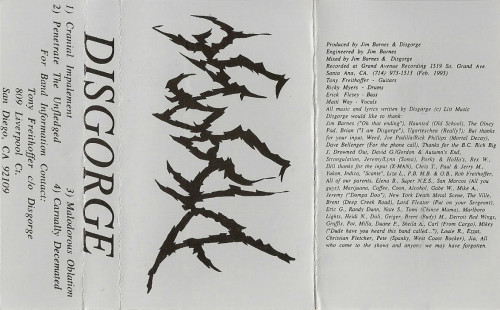 DISGORGE
1) Cranial Impalement
2) Penetrate The Unfledged
3) Malodorous Oblation
4) Carnally Decemated
For Band Information Contact:
Tony Freithoffer c/o Disgorge
809 Liverpool Ct.
San Diego, CA 92109
DISGORGE
Produced by Jim Barnes & Disgorge
Engineered by Jim Barnes
Mixed by Jim Barnes & Disgorge
Recorded at Grand Avenue Recording 1519 So. Grand Ave.
Santa Ana, CA. (714) 973-1513 (Feb. 1995)
Tony Freithoffer - Guitars
Ricky Myers - Drums
Erick Flesey - Bass
Matti Way - Vocals
All music and lyrics written by Disgorge (c) List Music
Disgorge would like to thank:
Jim Barnes ("Ok that ending"), Haunted (Old School), The Olney
Pad, Brian ("I am Disgorge"), Ugartechea (Really!), But thanks
for your input, Weed, Joe Padilla/Rick Phillips (Mortal Decay),
Dave Bellenger (For the phone call), Thanks for the B.C. Rich Big
J, Drowned Out, David G./Gordon & Autumn's End,
Strangulation, Jeremy/Lynn (Soma), Porky & HoHo's, Rex W.,
Dill thanks for the input (X-MAN), Chris T., Paul & Jerry M.,
Yukon, Indica, "Scante", Liza L., P.B. M.B. & O.B., Rob Freithoffer,
All of our parents, Elena B., Super N.E.S., San Marcos (All you
guys), Marijuana, Coffee, Coon, Alcohol, Gabe W., Mike A.,
Jeremy ("Dompa Doo"), New York Death Metal Scene, The Ville,
Brent (Deep Creek Road), Laird Fleator (Put on your Sergeant),
Eric G., Randy Dunn, Nate S., Tomi (Chinca Mama), Marlboro
Lights, Heidi N., Doli, Geiger, Brent (Body) M., Detroit Red Wings,
Griffis, Pat, Milla, Duane F., Sheila A., Carl (From Cargo), Mikey
("Dude have you heard this band called..."), Louie R., Ezzat,
Christian Fletcher, Pete (Spanky, West Coast Rocker), Jia, All
who came to the shows and anyone we may have forgotten.